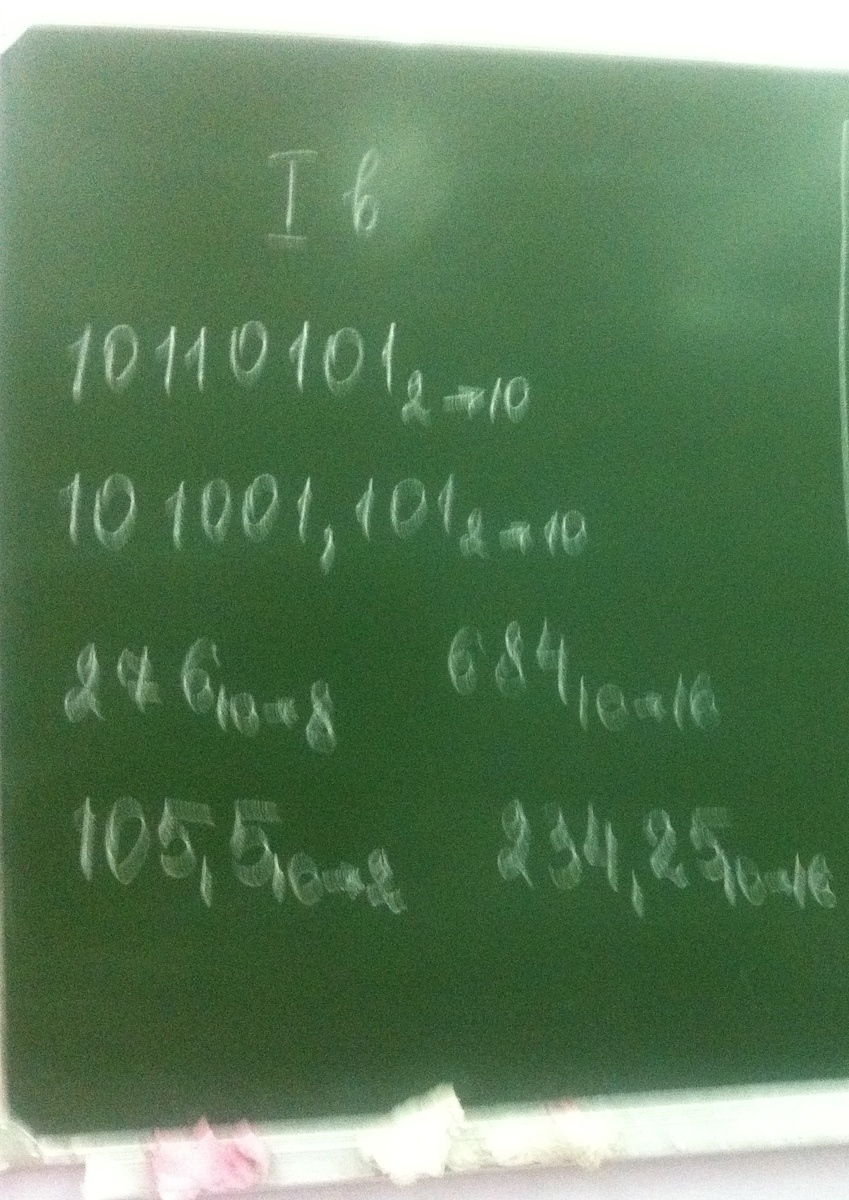 I в
10110101₂→₁₀
101001,101₂→₁₀
276₁₀→₈ 684₁₀→₁₆
105,5₁₀→₂ 234,25₁₀→₁₆